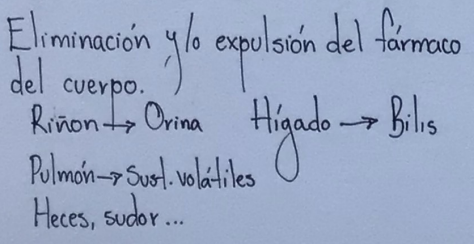 Eliminación y/o expulsión del fármaco
del cuerpo.
Riñon → Orina Hígado → Bilis
Pulmón → Sust. volátiles
Heces, sudor...